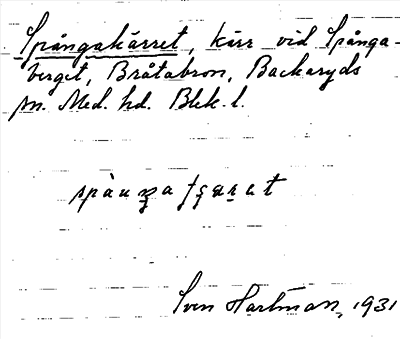 Spångakärret, kärr vid Spånga-
berget, Bråtabron, Backaryds
sn. Med. hd. Blek. l.
Sven Hartman, 1931